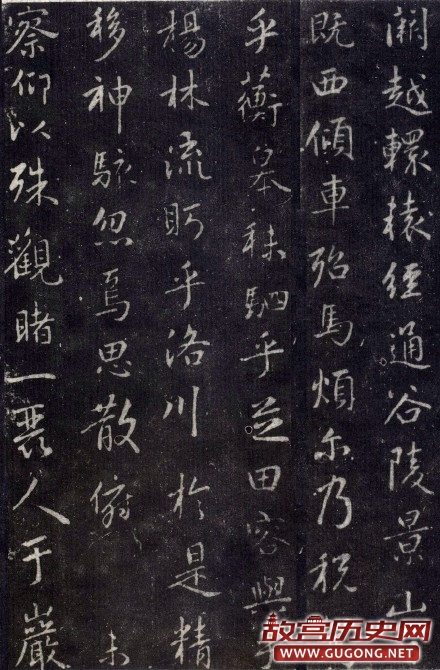 闕越轘轅經通谷陵景山
既西傾車殆馬煩尔乃税
乎蘅皋秣駟乎芝田容與乎
楊林流眄乎洛川於是精
移神駭忽焉思散俯 未
察仰以殊觀睹一麗人于巖
故宫历史网
WWW.GUGONG.NET